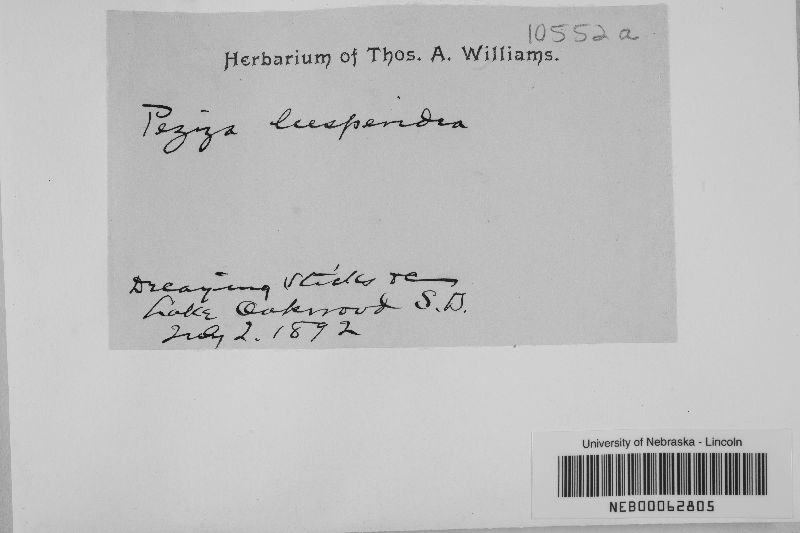 10552a
Herbarium of Thos. A. Williams.
Peziza
Decaying sticks etc
Lake Oakwood S.D.
July 2. 1892
University of Nebraska - Lincoln
NEB00062805